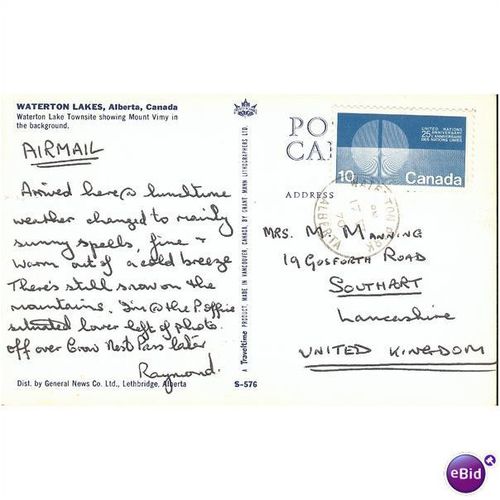 WATERTON LAKES, Alberta, Canada
Waterton Lake Townsite showing Mount Vimy in
the background.
AIRMAIL
Arrived here @ lunchtime
weather changed to mainly
sunny spells, fine +
warm out of a cold breeze
There's still snow on the
mountains. I'm @ the P. office
situated lower left of photo.
off over Crow Nest Pass later
Raymond.
Dist. by General News Co. Ltd., Lethbridge, Alberta
S-576
A Traveltime PRODUCT, MADE IN VANCOUVER, CANADA, BY GRANT MANN LITHOGRAPHERS LTD.
PO
CA
ADDRESS
UNITED NATIONS
25th ANNIVERSARY
25e ANNIVERSAIRE
DES NATIONS UNIES
10 Canada
WATERTON PARK
17
70
ALBERTA
MRS. M. MANNING
19 GOSFORTH ROAD
SOUTHPORT
Lancashire
UNITED KINGDOM
eBid